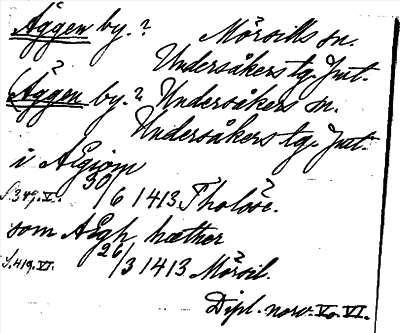 Äggen by.? Mörsills sn.
Undersåkers tg. Jmt.
Äggen by.? Undersåkers sn.
Undersåkers tg. Jmt.
i Ægiom
S. 349. V. 30/6 1413 Tholöse.
som Ægh hæther
S. 419. VI. 26/3 1413 Mörsil.
Dipl. norv. V. VI.